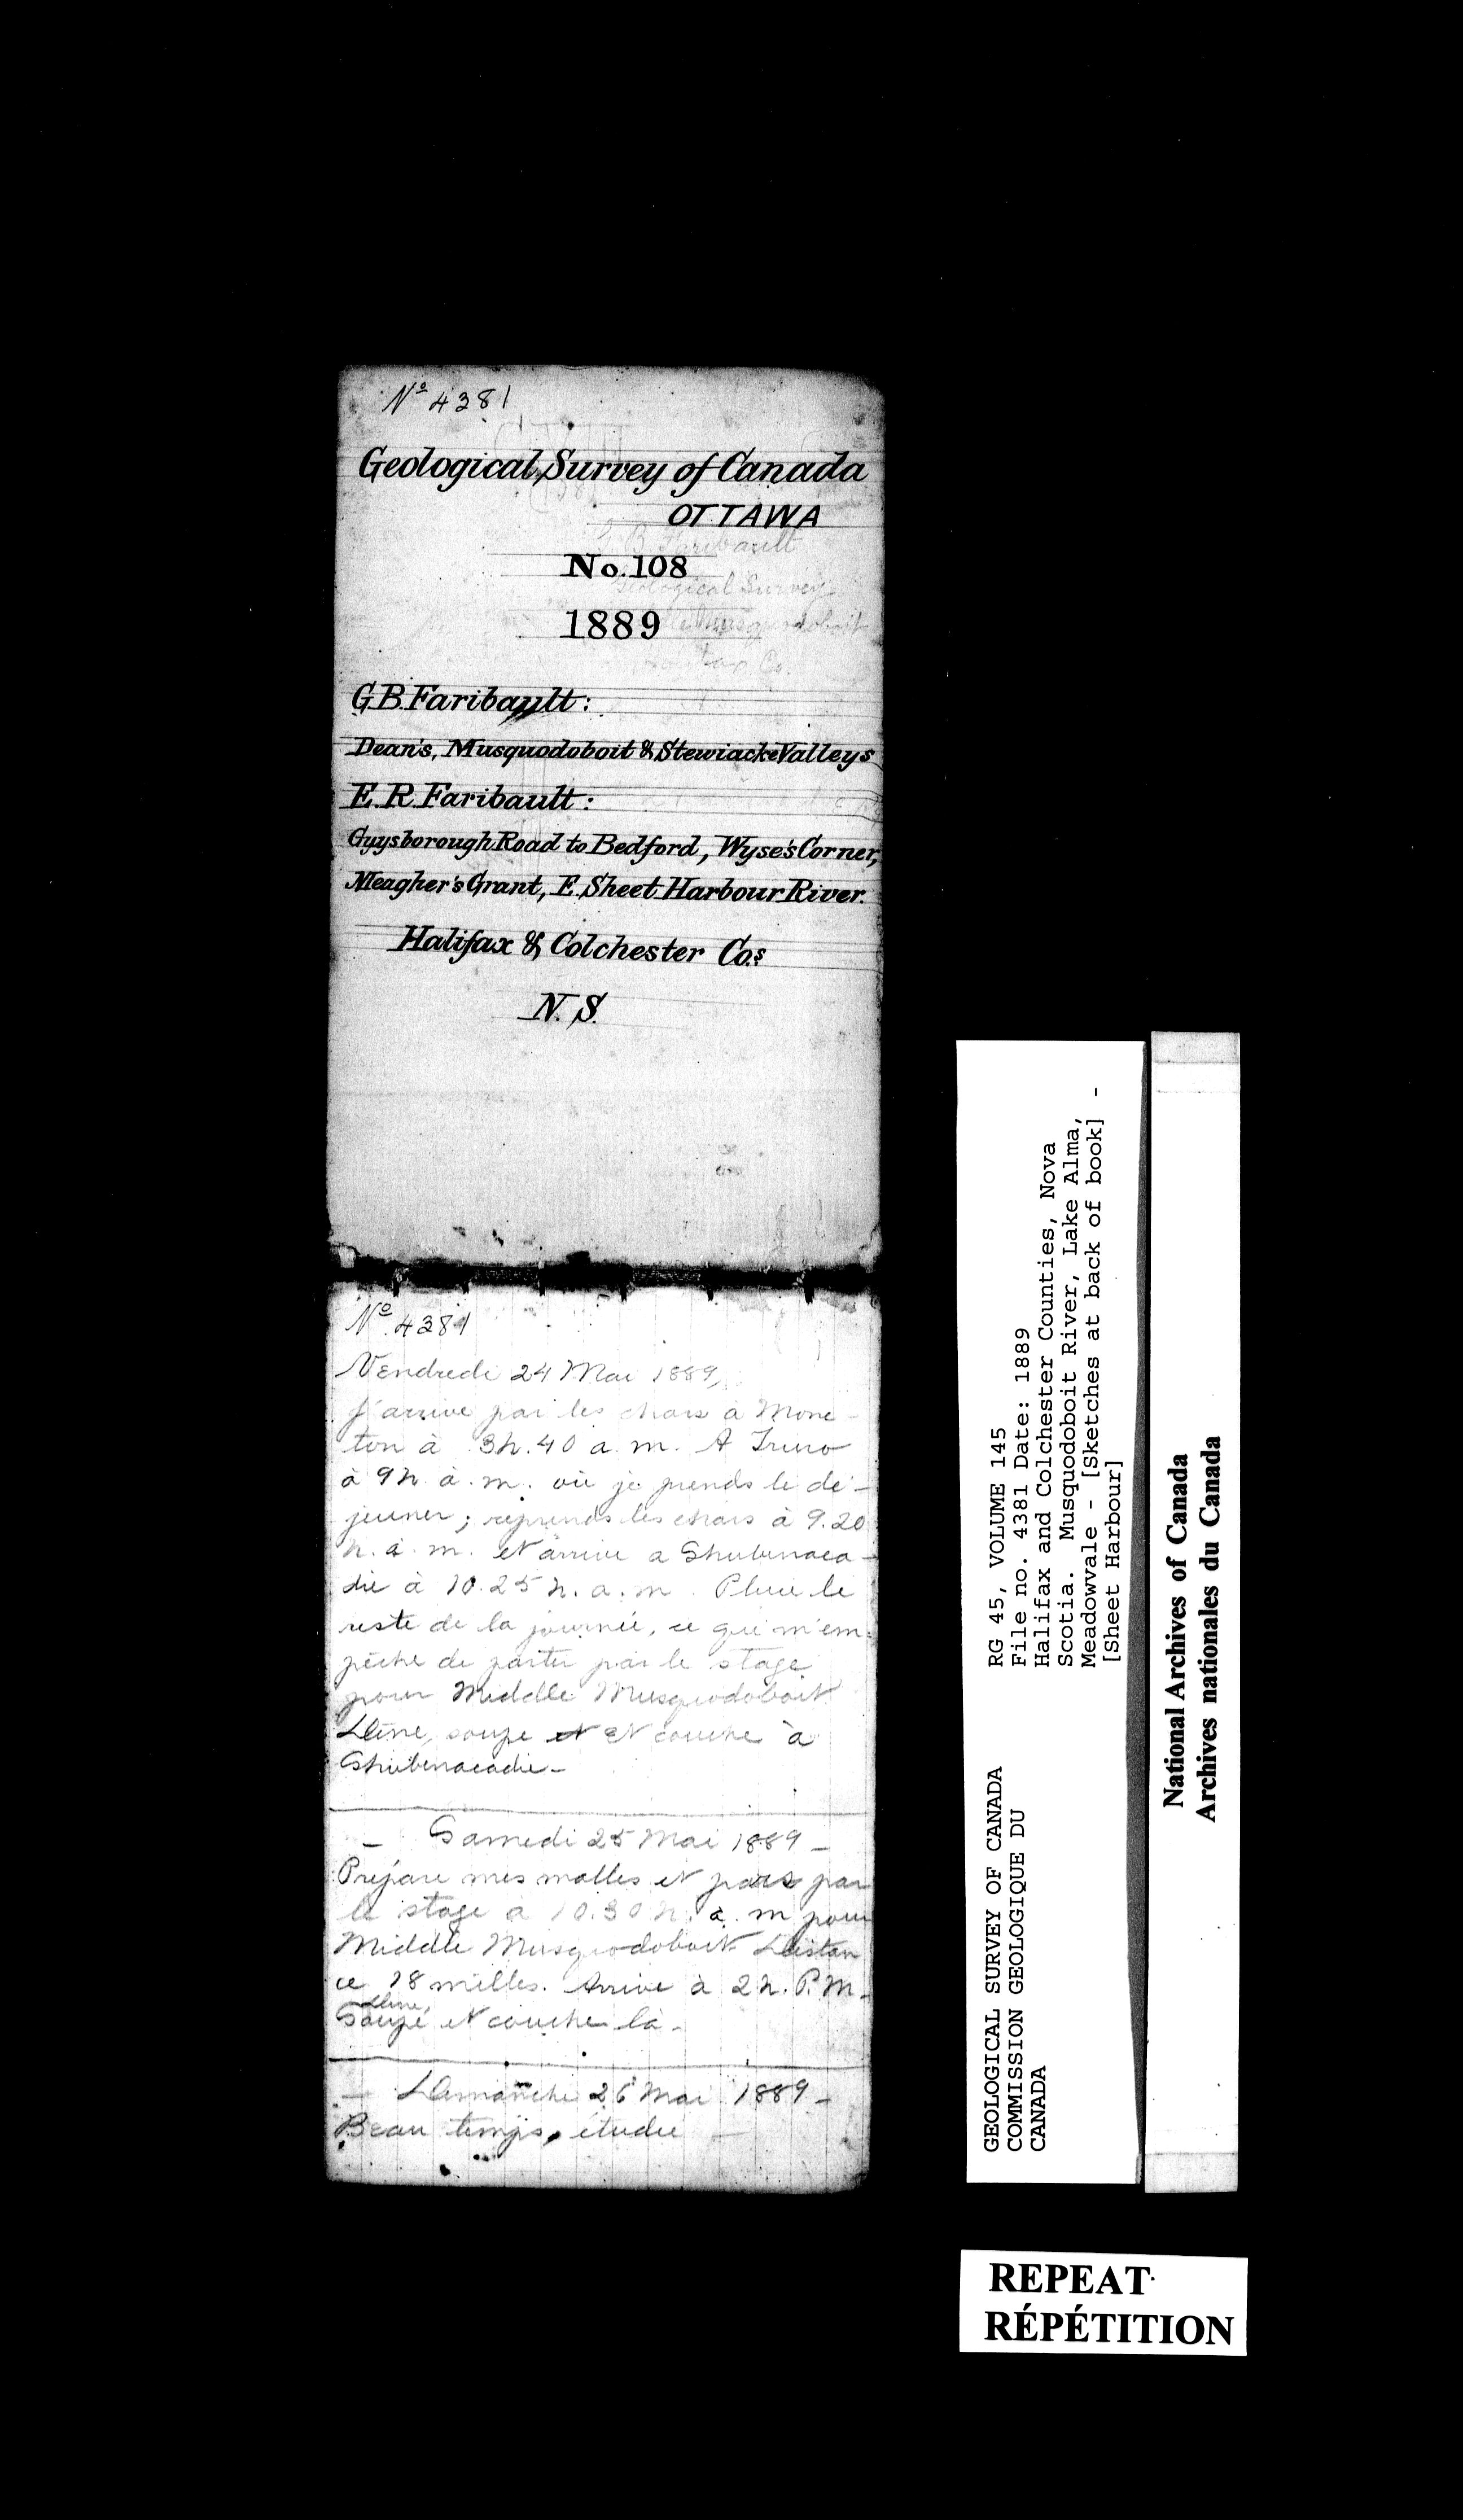 Nº 4381
Geological Survey of Canada
OTTAWA
G B Faribault
No. 108
Geological Survey
1889
Musquodoboit
Co.
G.B. Faribault:
Dean's, Musquodoboit & Stewiacke Valleys
E.R. Faribault:
Guysborough Road to Bedford, Wyse's Corner,
Meagher's Grant, E. Sheet Harbour River.
Halifax & Colchester Cos
N. S.
Nº 4381
Vendredi 24 Mai 1889,
J'arrive par les chars à Monc-
ton à 3h.40 a. m. A Truro
à 9h. à. m. où je prends le dé-
jeuner ; reprends les chars à 9.20
h. a. m. et arrive a Shubenaca-
die à 10.25 h. a. m. Pluie le
reste de la journée, ce qui m'em-
pêche de partir par le stage
pour Middle Musquodoboit.
Dîne, soupe et couche à
Shubenacadie -
- Samedi 25 Mai 1889 -
Prépare mes malles et pars par
le stage a 10.30 h. a. m pour
Middle Musquodoboit Distan
ce 18 milles. Arrive à 2 h. P. M -
Dîne,
Soupe et couche là -
- Dimanche 26 Mai 1889 -
Beau temps, étudie -
RG 45, VOLUME 145
File no. 4381 Date: 1889
Halifax and Colchester Counties, Nova
Scotia. Musquodoboit River, Lake Alma,
Meadowvale - [Sketches at back of book] -
[Sheet Harbour]
GEOLOGICAL SURVEY OF CANADA
COMMISSION GEOLOGIQUE DU
CANADA
National Archives of Canada
Archives nationales du Canada
REPEAT
RÉPÉTITION